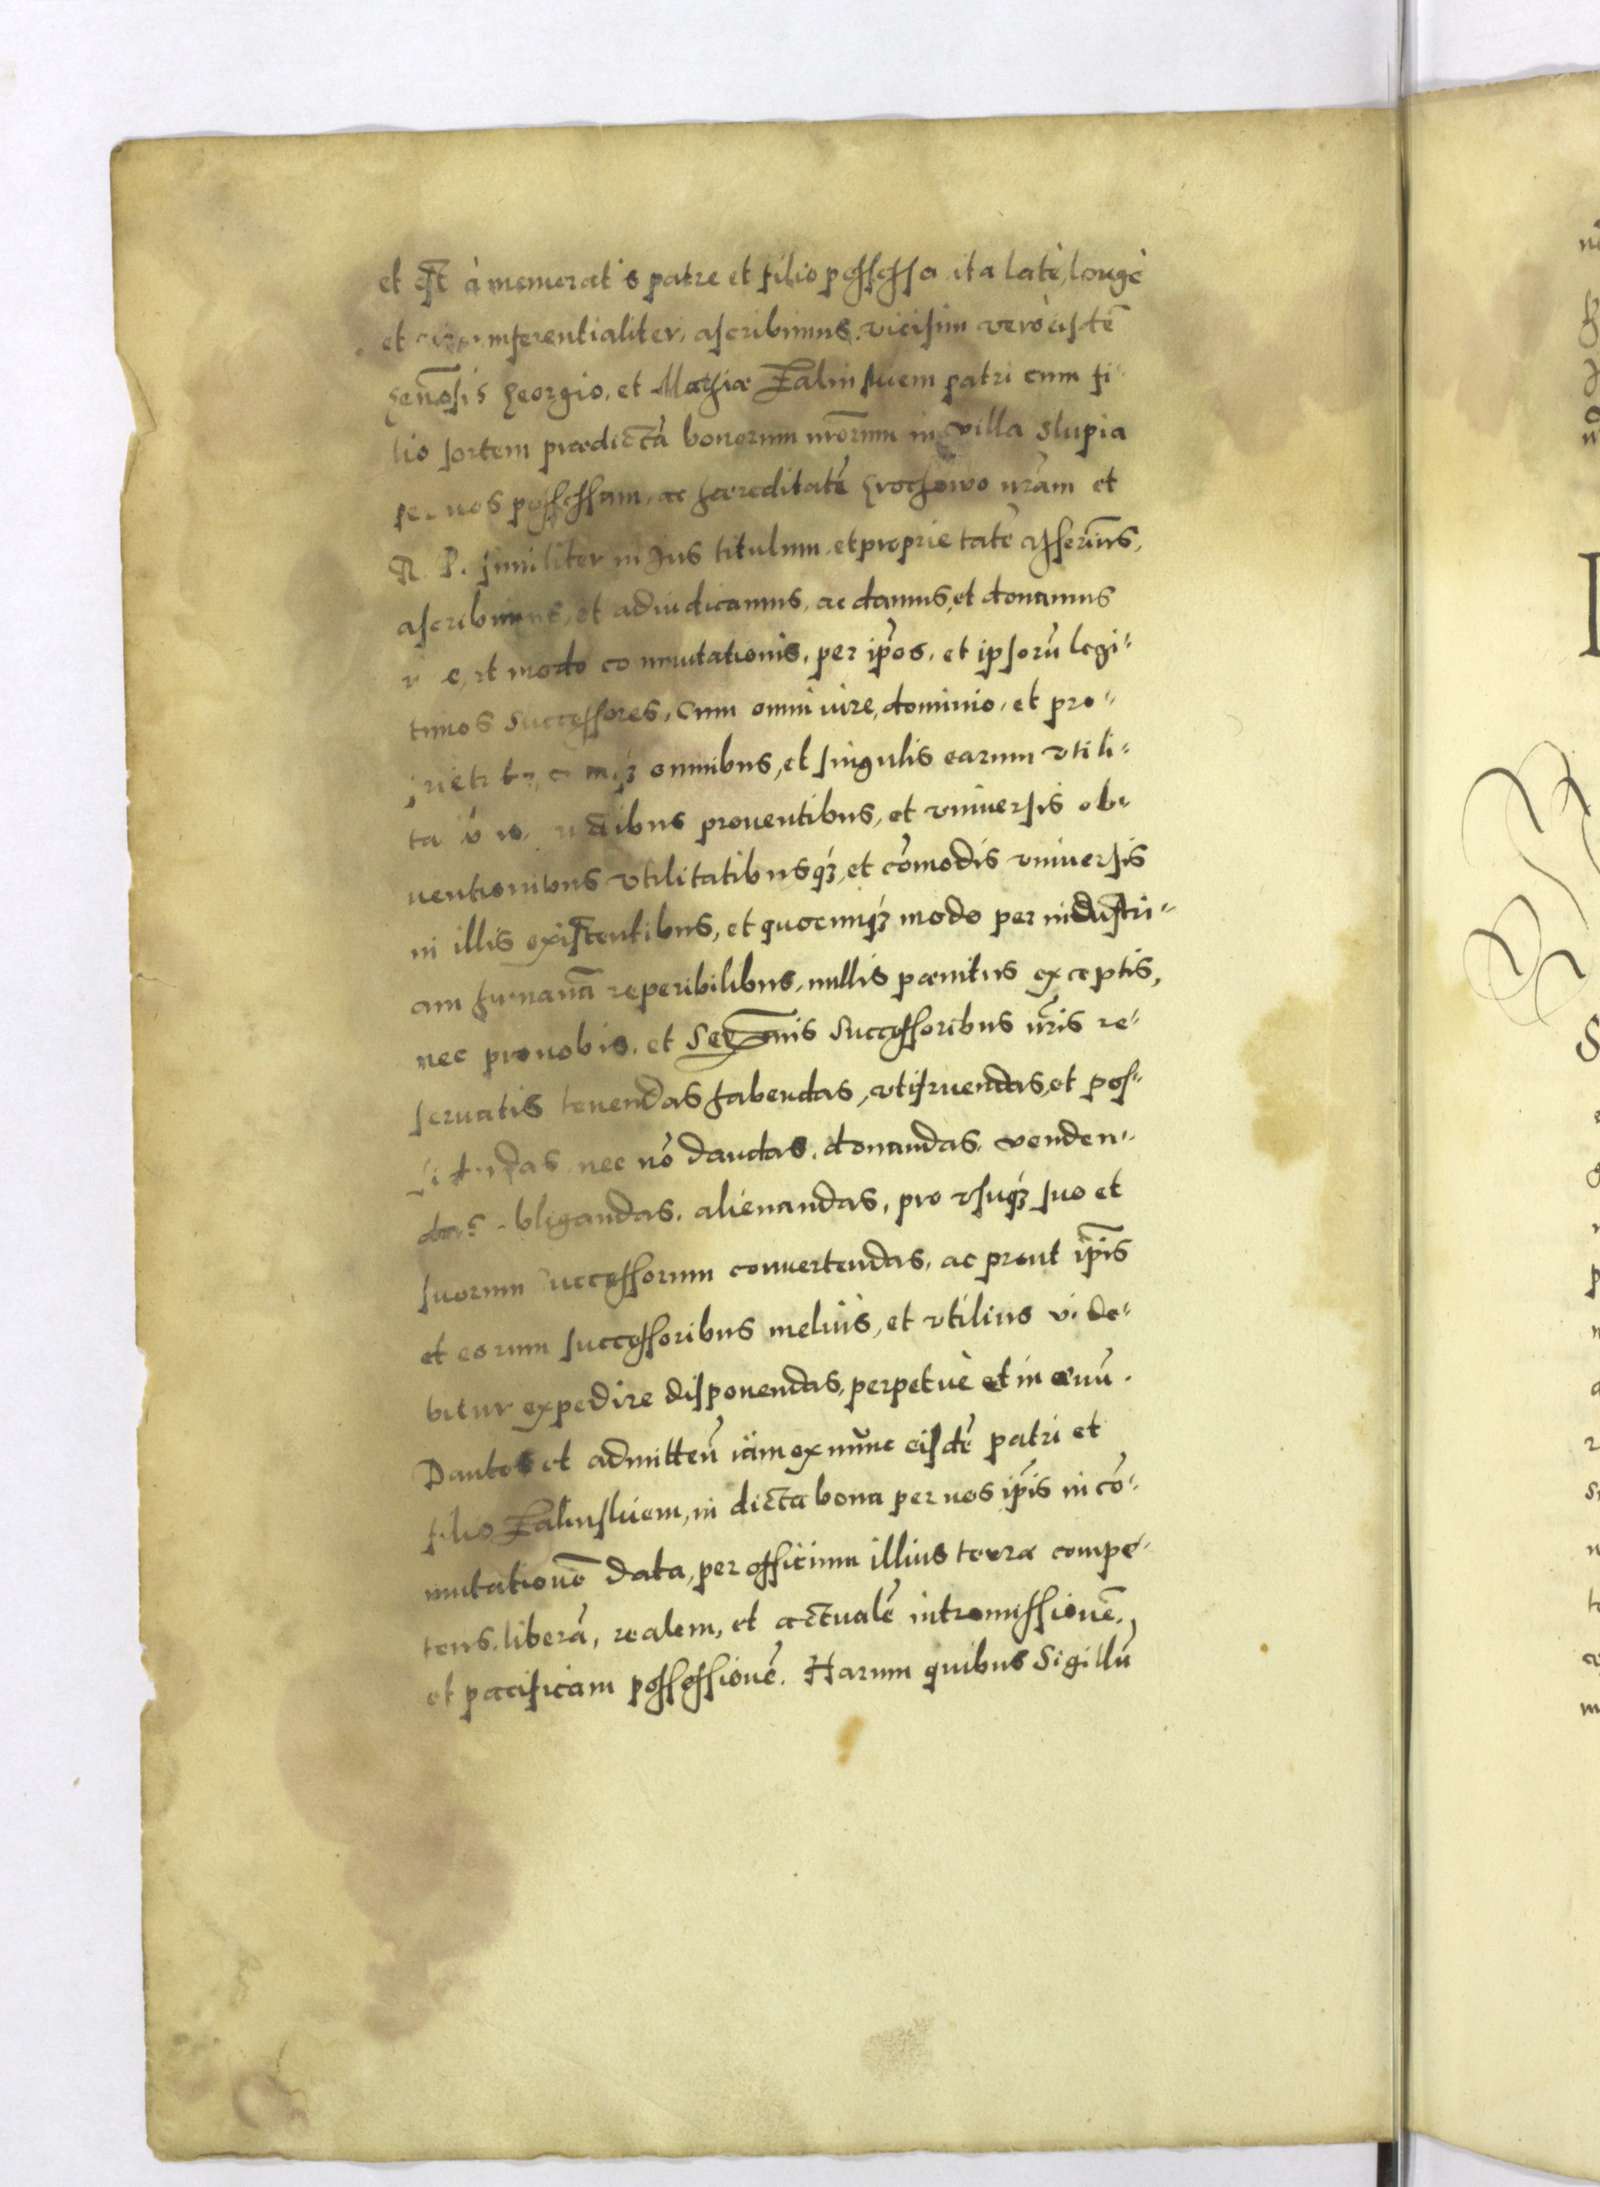 et est à memoratis patre et filio possessa ita latè, longè
et circumferentialiter, ascribimus. vicisim verò eisdē
Georgio, et Mathiæ Zalinskiem patri cum fi-
lio sortem prædictā bonorum nrōrum in villa Slupia
per nos possessam, ac hæreditatē Grochowo nrām et
R. P. similiter in Jus titulum, et proprietatē asserim̄s,
ascribimus, et adiudicamus, ac damus, et donamus
et modo commutationis, per ip̄os, et ipsorū legi-
timos Successores, Cum omni iure, dominio, et pro-
omnibus, et singulis earum vtili-
proventibus, et vniversis ob-
ventionibus vtilitatibusq3, et cōmodis vniversis
in illis existentibus, et quocunq3 modo per industri-
am humanā reperibilibus, nullis pœnitus exceptis,
nec pro nobis, et Ser̄mis Successoribus nr̄is re-
servatis tenendas habendas, vtifruendas, et pos-
nec nō dandas, donandas, venden-
das obligandas, alienandas, pro vsuq3 suo et
suorum successorum convertendas, ac prout ip̄is
et eorum successoribus meliùs, et vtilius vide-
bitur expedire disponendas, perpetuè et in ævū.
Dantes et admitteñ iam ex nunc eisdē patri et
filio Zalinskiem, in dicta bona per nos ip̄is in cō-
mutationē data, per officium illius terræ compe-
tens, liberā, realem, et actualē intromissionē,
et pacificam possessionē. Harum quibus Sigillū